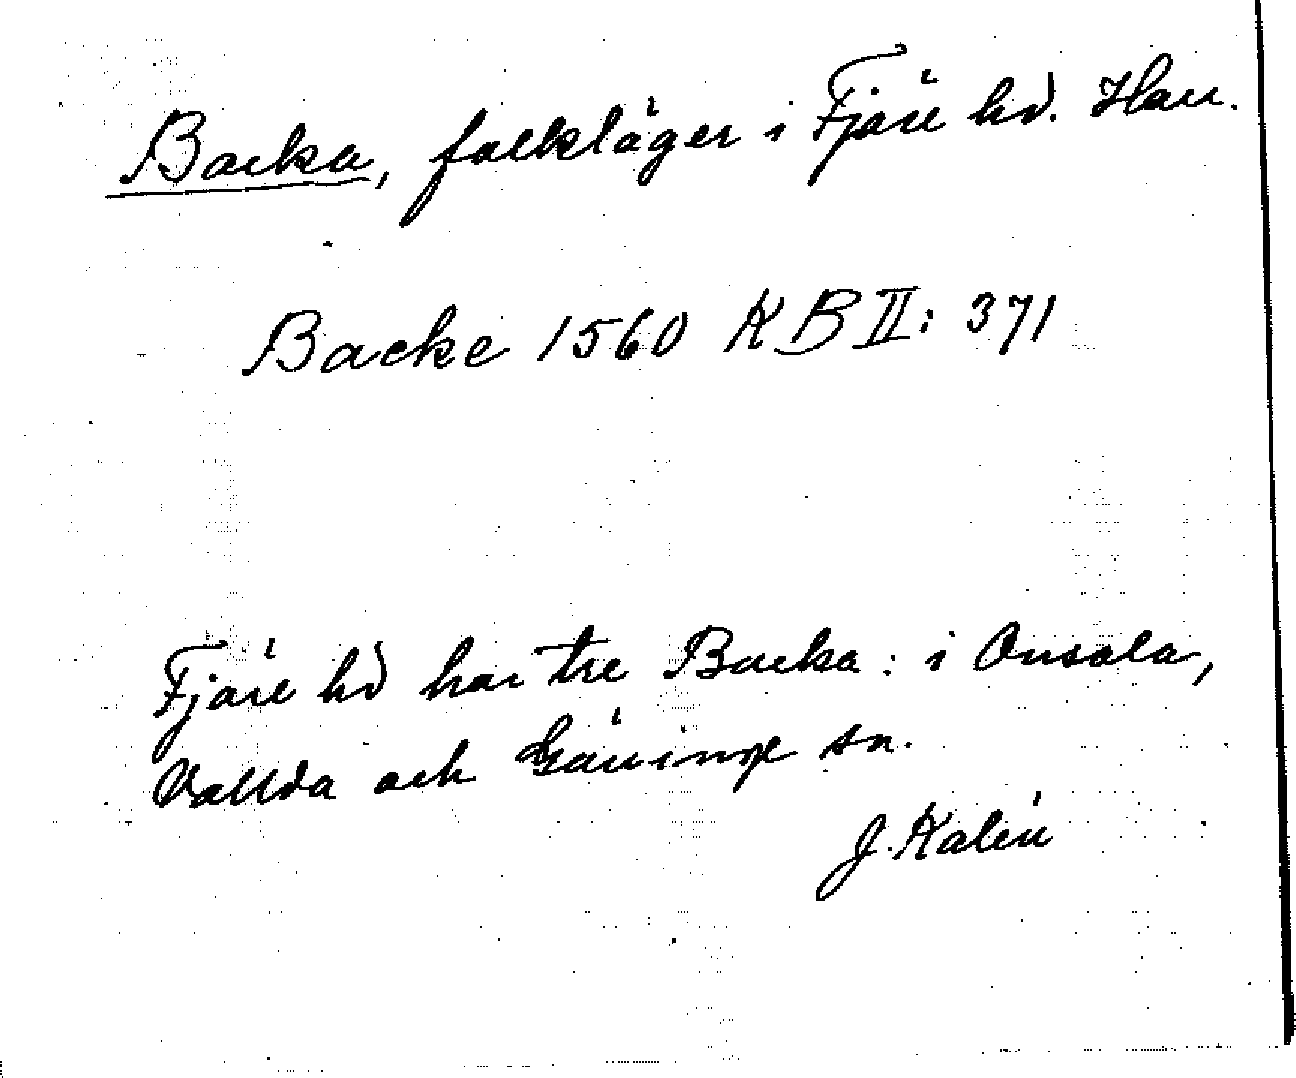 Backa, falkläger i Fjäre hd. Hall.
Backe 1560 KB II: 371
Fjäre hd har tre Backa: i Onsala,
Vallda och Gällinge sn.
J. Kalén